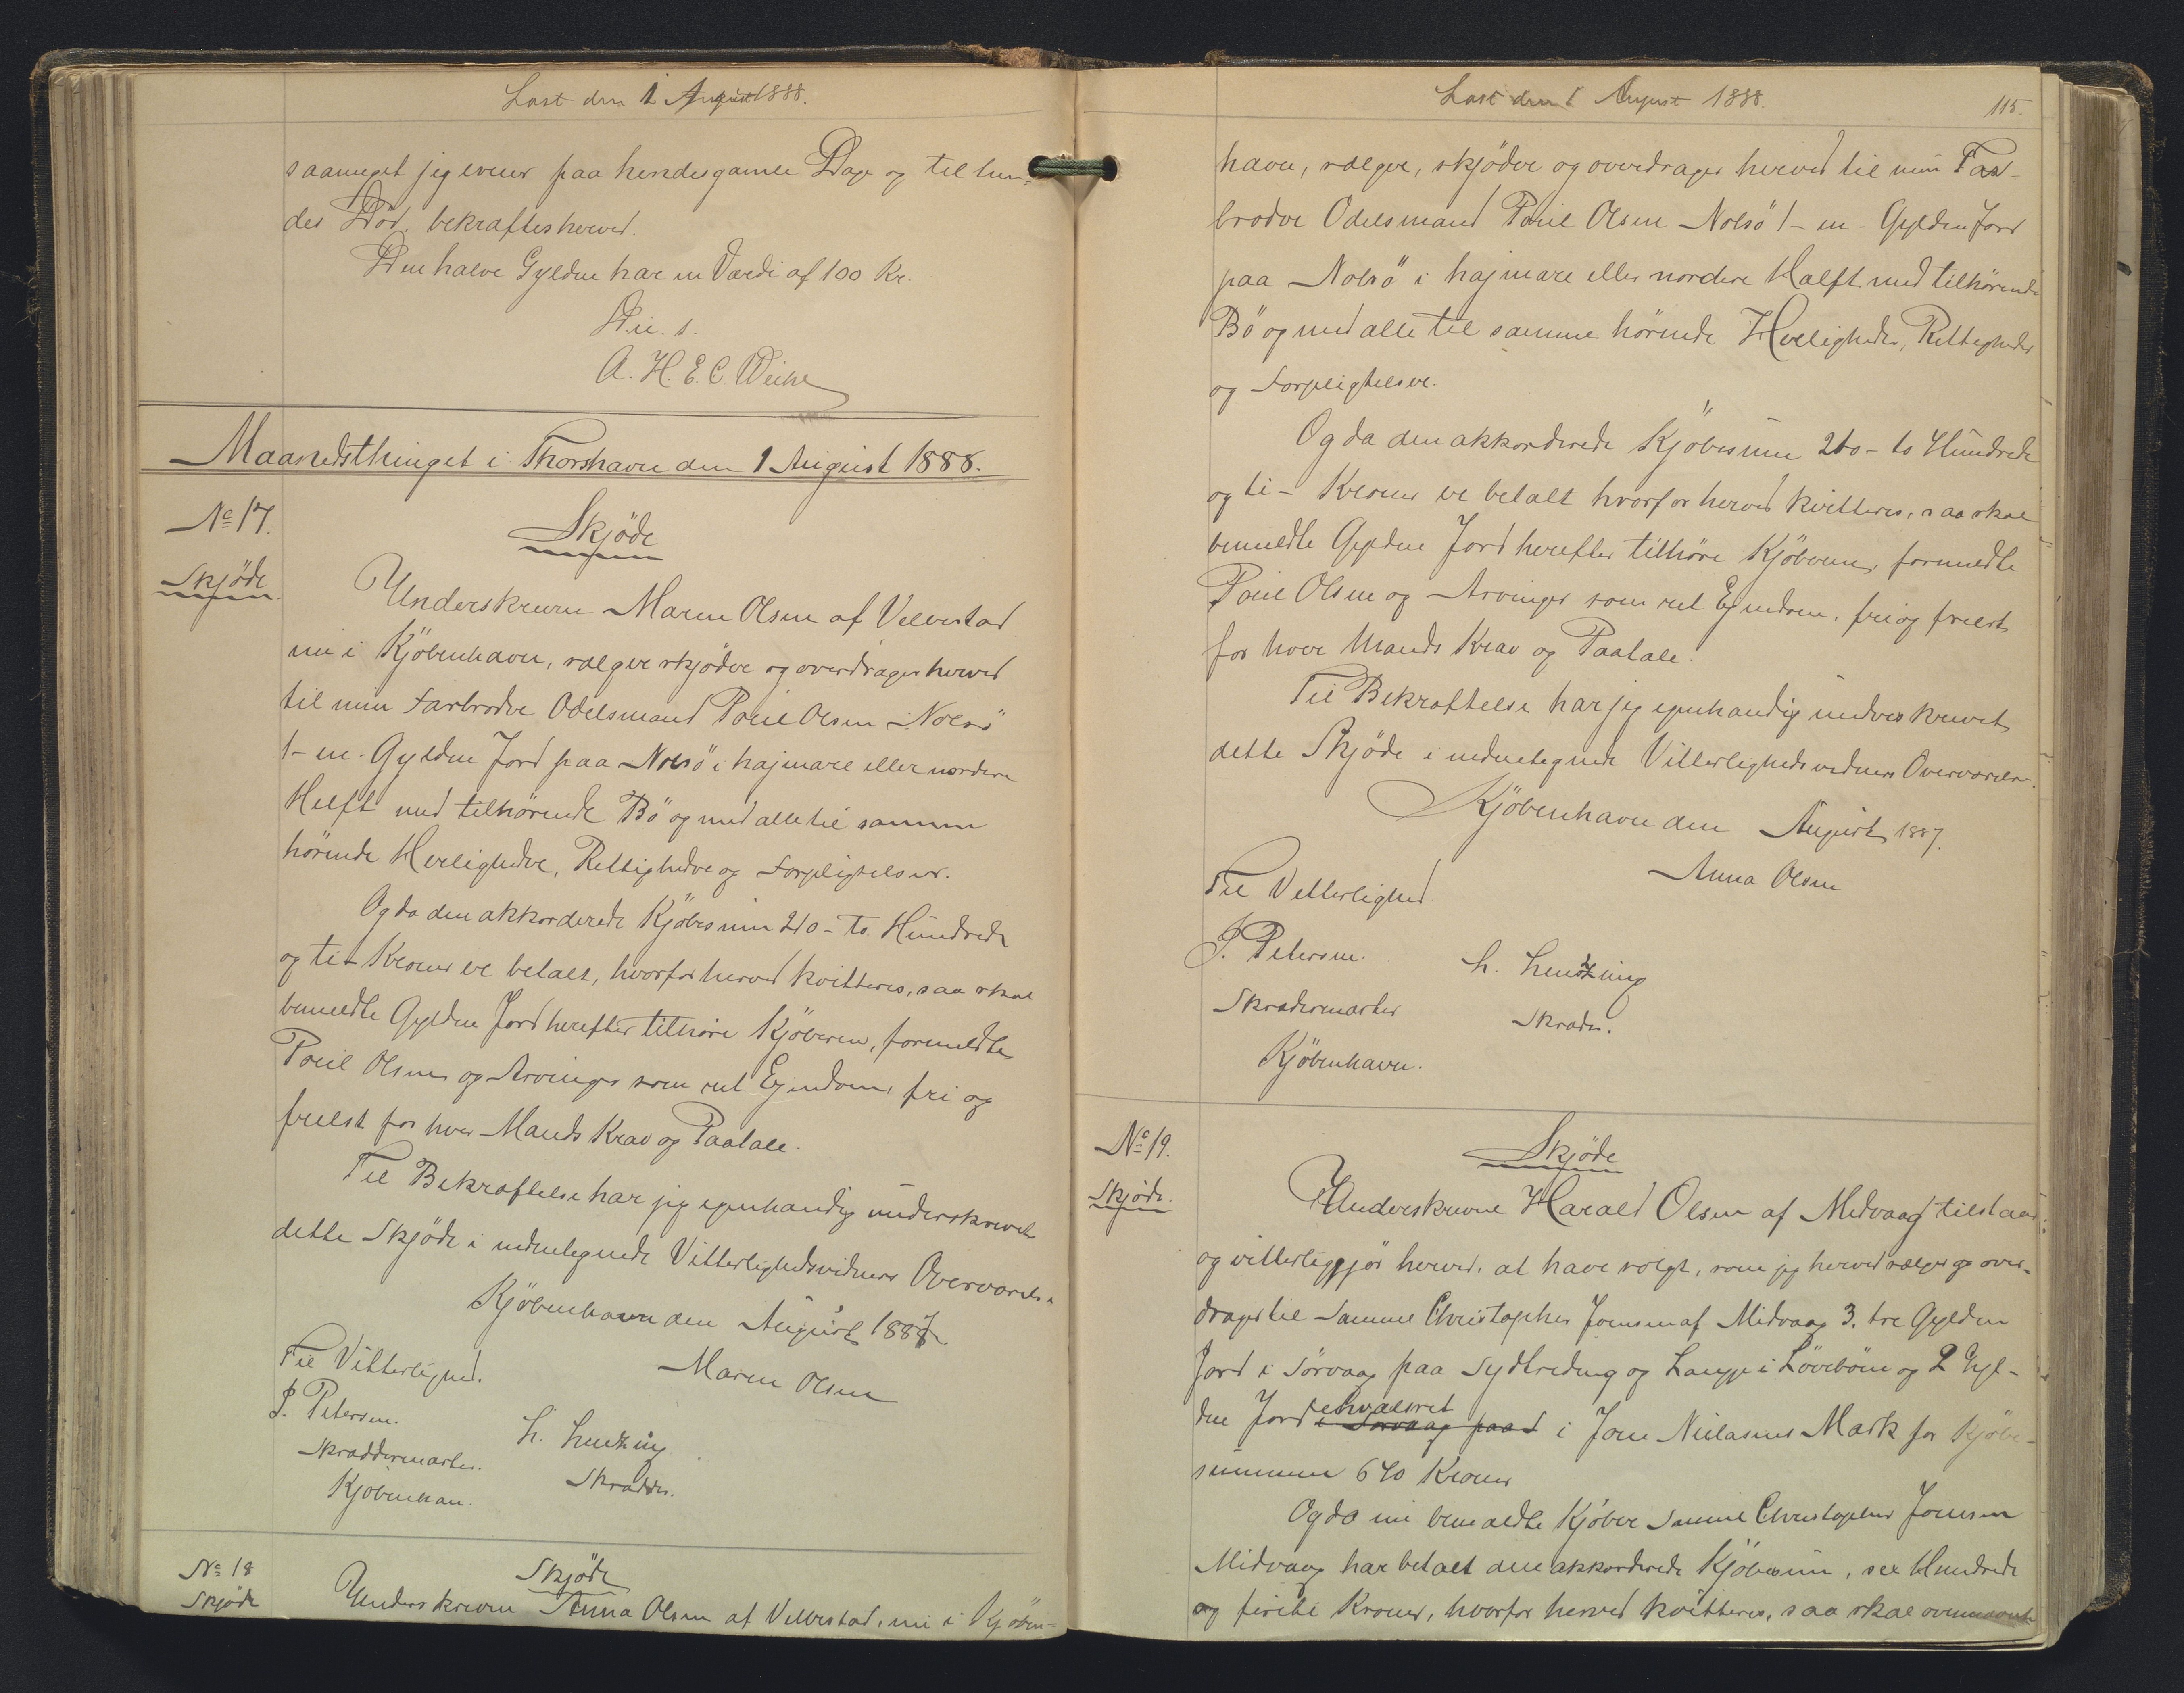 Læst den 1 August 1888.
saameget jeg evner paa hendes gamle Dage og til hen-
des Död, bekræftes herved.
Den halve Gylden har en Værdi af 100 Kr.
D. u. s.
A. H. E. C. Weihe
Maanedsthinget i Thorshavn den 1 August 1888.
No 17.
Skjöde
Skjöde
Underskrevne Maren Olsen af Velbestad
nu i Kjöbenhavn, sælger skjöder og overdrager herved
til min Farbroder Odelsmand Poul Olsen Nolsö
1- en - Gylden Jord paa Nolsö i hajmare eller nordere
Helft med tilhörende Bö og med alle til samme
hörende Herligheder, Rettigheder og Forpligtelser.
Og da den akkorderede Kjöbesum 210 - to Hundrede
og ti - Kroner er betalt, hvorfor herved kvitteres, saa skal
bemeldte Gylden Jord herefter tilhöre Kjöberen, formeldte
Poul Olsen og Arvinger som ret Ejendom, fri og
frelst for hver Mands Krav og Paatale.
Til Bekræftelse har jeg egenhændig underskrevet
dette Skjöde i undertegnede Vitterlighedsvidners Overværelse
Kjöbenhavn den August 1887.
Til Vitterlighed.
Maren Olsen
J. Petersen.
Skræddermester.
Kjöbenhavn.
h.
Skrædder.
No 18
Skjöde
Skjöde
Underskrevne Anna Olsen af Velbestad, nu i Kjöben-
Læst den 1 August 1888.
115.
havn, sælger, skjöder og overdrager herved til min Far-
broder Odelsmand Poul Olsen Nolsö 1- en - Gylden Jord
paa Nolsö i hajmare eller nordere Halft med tilhörende
Bö og med alle til samme hörende Herligheder, Rettigheder
og Forpligtelser.
Og da den akkorderede Kjöbesum 210 - to Hundrede
og ti - Kroner er betalt hvorfor herved kvitteres, saa skal
bemeldte Gylden Jord herefter tilhöre Kjöberen, formeldte
Poul Olsen og Arvinger som ret Ejendom, fri og frelst
for hver Mands Krav og Paatale.
Til Bekræftelse har jeg egenhændig underskrevet
dette Skjöde i undertegnede Vitterlighedsvidners Overværelse.
Kjöbenhavn den August 1887.
Anna Olsen
Til Vitterlighed
J. Petersen.
Skræddermester
Kjöbenhavn.
h.
Skræder.
No 19.
Skjöde.
Skjöde
Underskrevne Harald Olsen af Midvaag tilstaar
og vitterliggjör herved, at have solgt, som jeg herved sælger og over-
drager til Samuel Christopher Joensen af Midvaag 3. tre Gylden
Jord i Sörvaag paa Sydtreding og Lauge i Löveböne og 2 Gyl-
den Jord i Sörvaag paa i Jone Nielasens Mark for Kjöbe-
summen 640 Kroner
Og da nu bemeldte Kjöber Samuel Christopher Joensen
Midvaag har betalt den akkorderede Kjöbesum, sex Hundrede
og firti Kroner, hvorfor herved kvitteres, saa skal ovennævnte